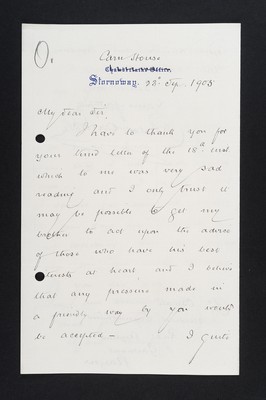 Carn House
Chamberlain's Office.
Stornoway. 22d Sep. 1905
My dear Sir,
I have to thank you for
your kind letter of the 18th inst.
which to me was very sad
reading and I only trust it
may be possible to get my
brother to act upon the advice
of those who have his best
interests at heart and I believe
that any pressure made in
a friendly way by you would
be accepted — I quite